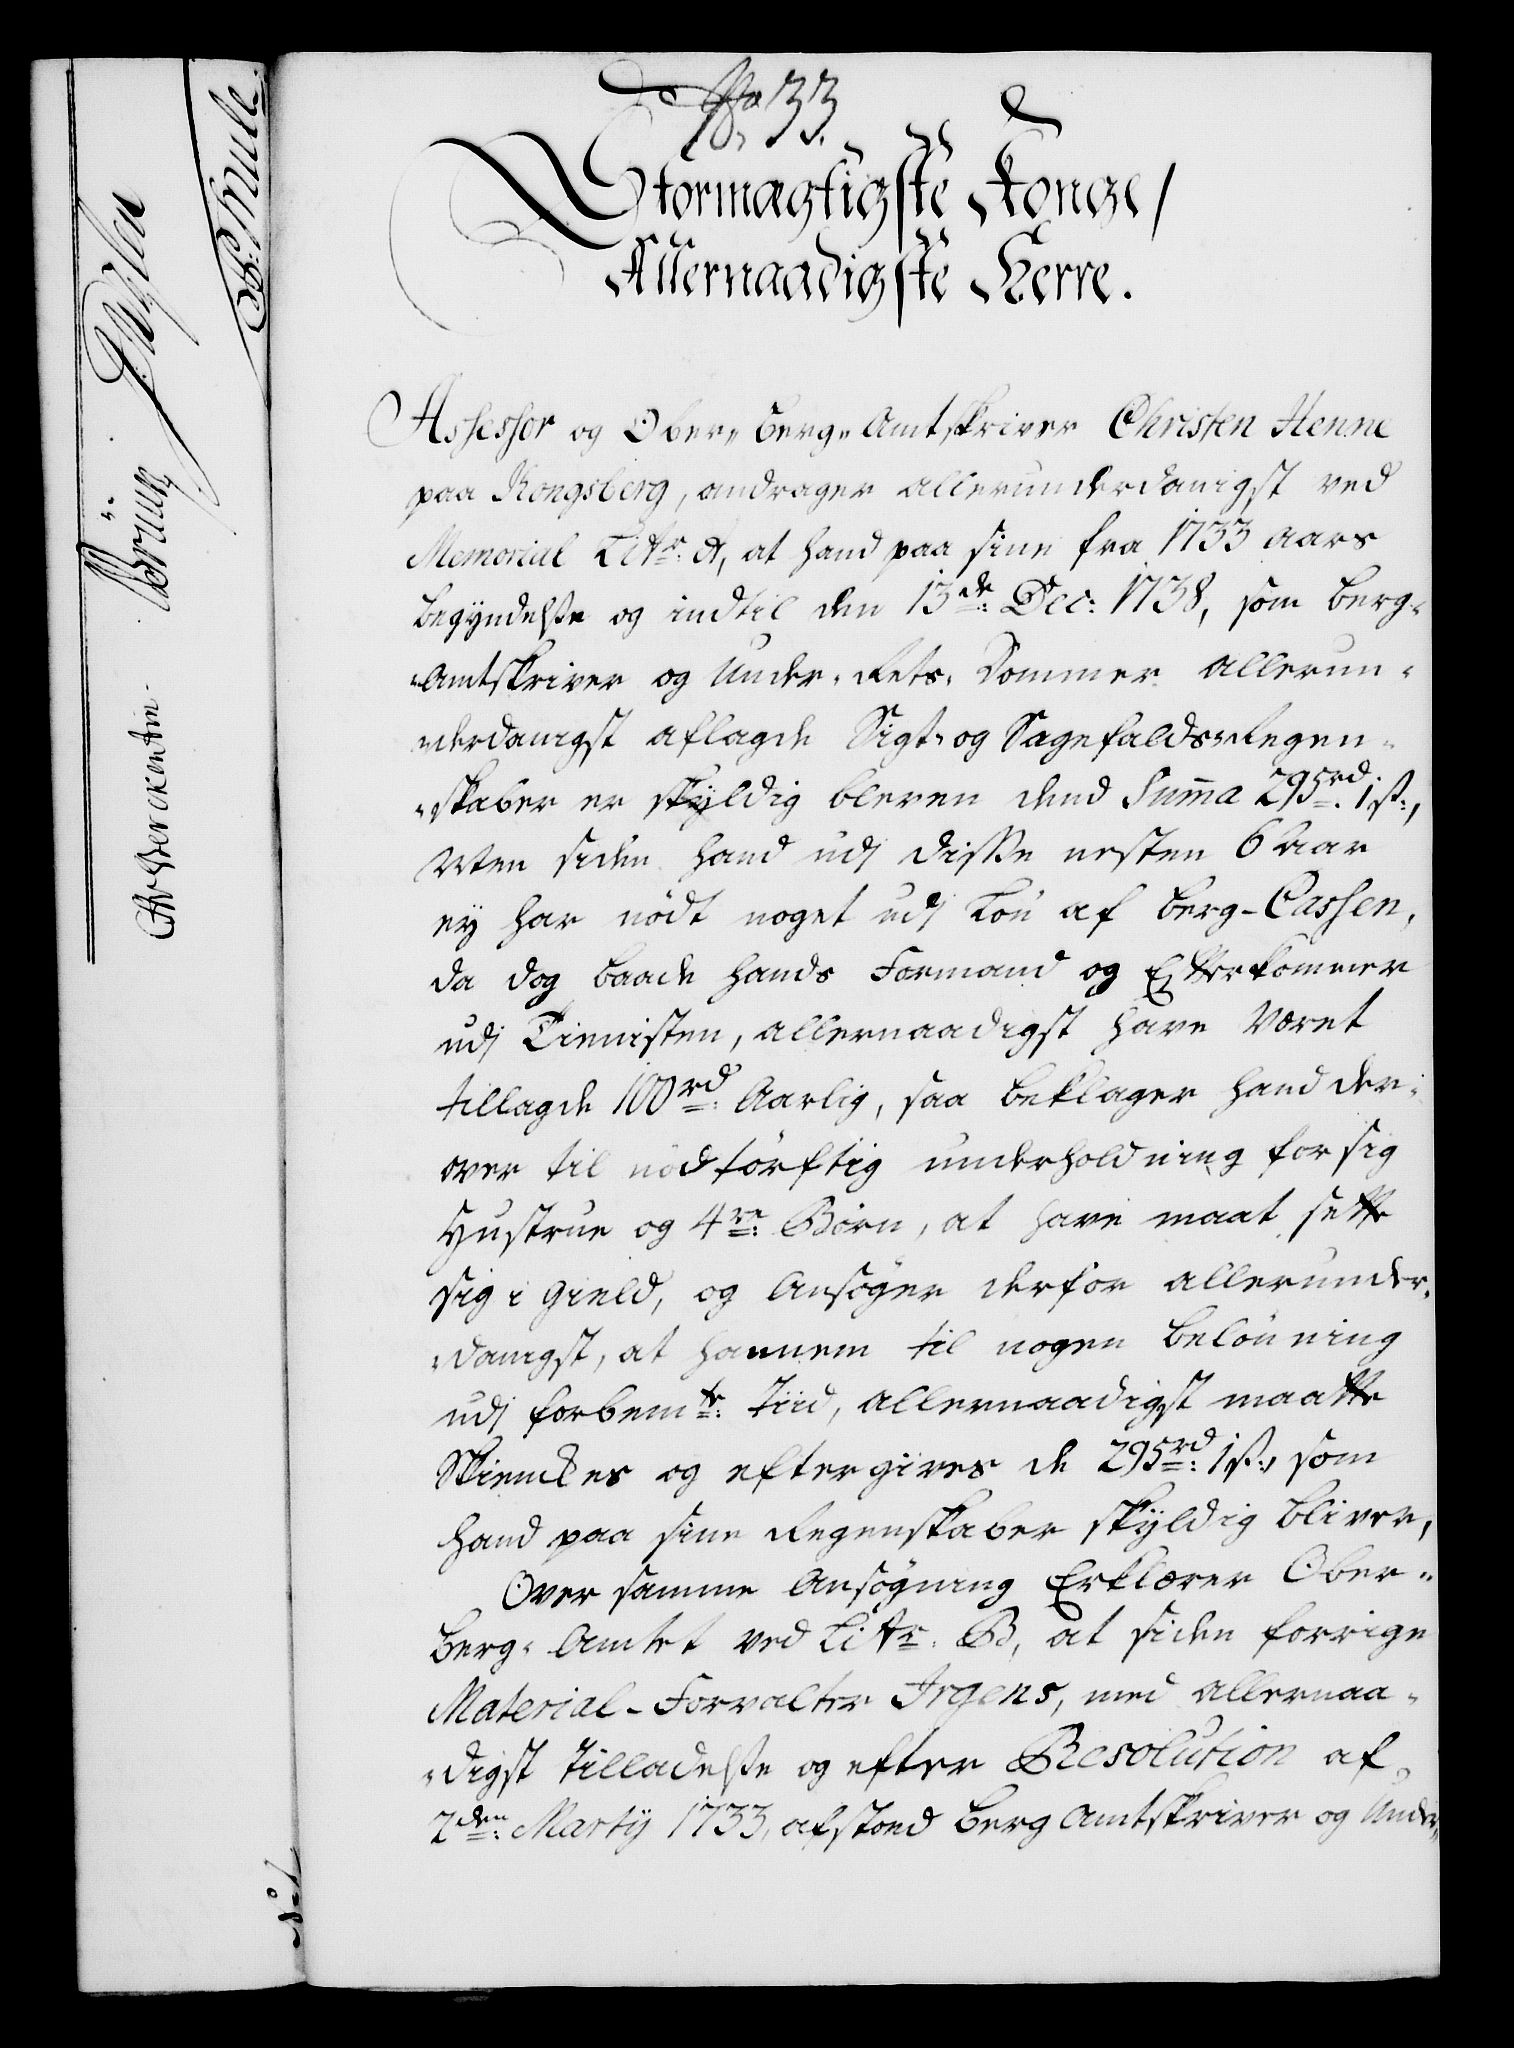 No 33.
Stormægtigste Konge/
Allernaadigste Herre.
Assessor og Ober„ Berg„ Amtskriver Christen Henne
paa Kongsberg, andrager allerunderdanigst ved
Memorial Litr: A, at hand paa sine fra 1733 aars
begyndelsse og indtil den 13de: Dec: 1738, som Berg„
„Amtskriver og Under„ Rets„ Dommer allerun„
„derdanigst aflagde Sigt„ og Sagefalds„Regen„
„skaber er skyldig bleven dend Summa 295rd: 1 ß:,
Men siden hand udj disse nesten 6 Aar
ey har nödt noget udj Lön af Berg-Cassen,
da dog baade hands Formand og Efterkommer
udj Tienisten, allernaadigst have været
tillagde 100rd: Aarlig, saa beklager hand der„
over til nödtörftig underholdning for sig
Hustrue og 4re: Börn, at have maat sette
sig i Gield, og Ansöger derfor allerunder„
„danigst, at hannem til nogen belönning
udj forbemte: Tiid, allernaadigst maatte
Skienckes og eftergives de 295rd: 1 ß:, som
hand paa sine Regenskaber skyldig bliver,
Over samme Ansögning Erklærer Ober„
Berg„ Amtet ved Litr: B, at siden forrige
Material-Forvalter Irgens, med allernaa„
„digst Tilladelsse og efter Resolution af
2den: Martij 1733, afstoed Berg Amtskriver og Under„